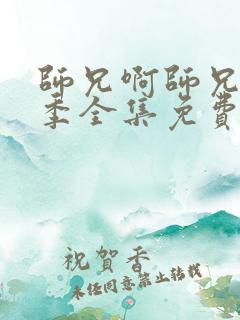 師兄啊師兄
季全集免費
祝賀香
未任同意禁止转载